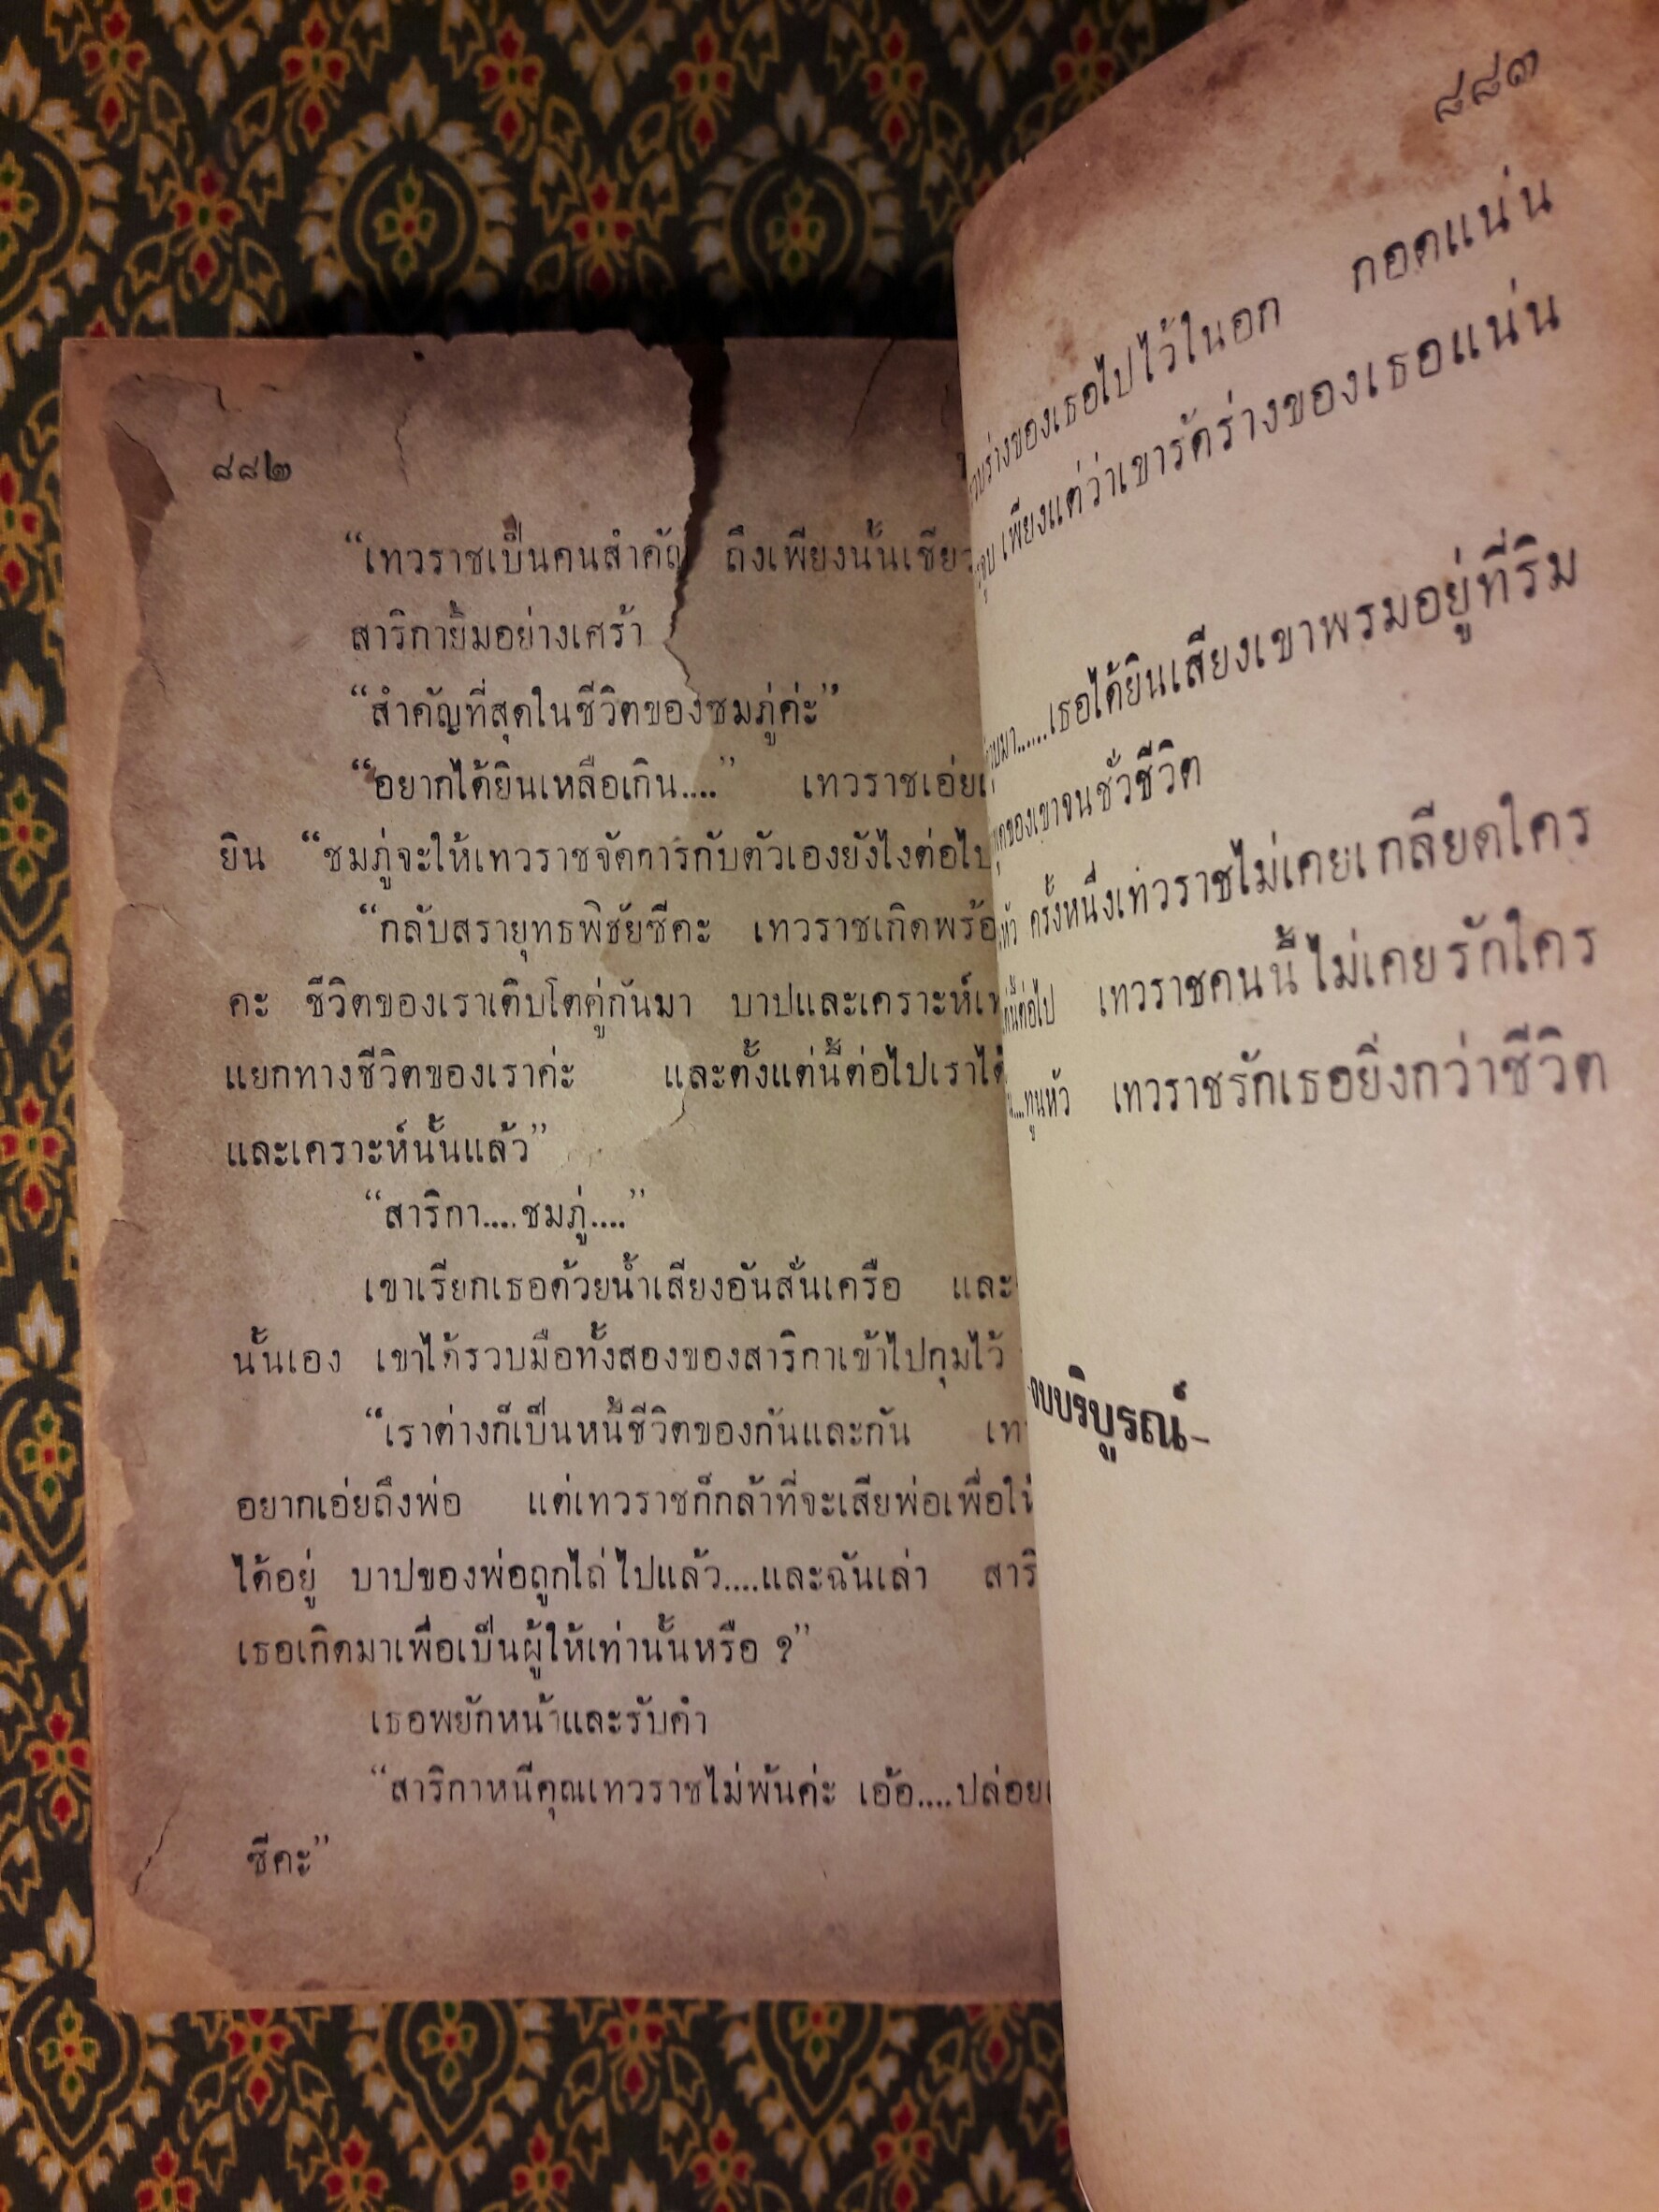 ๘๘๒
“เทวราชเป็นคนสำคัญ ถึงเพียงนั้นเชียว
สาริกายิ้มอย่างเศร้า
“สำคัญที่สุดในชีวิตของชมภู่ค่ะ”
“อยากได้ยินเหลือเกิน....” เทวราชเอ่ย
ยิน “ชมภู่จะให้เทวราชจัดการกับตัวเองยังไงต่อไป
“กลับสรายุทธพิชัยซีคะ เทวราชเกิดพร้อ
คะ ชีวิตของเราเติบโตคู่กันมา บาปและเคราะห์
แยกทางชีวิตของเราค่ะ และตั้งแต่นี้ต่อไปเราได้
และเคราะห์นั้นแล้ว”
“สาริกา....ชมภู่....”
เขาเรียกเธอด้วยน้ำเสียงอันสั่นเครือ และ
นั้นเอง เขาได้รวบมือทั้งสองของสาริกาเข้าไปกุมไว้
“เราต่างก็เป็นหนี้ชีวิตของกันและกัน เท
อยากเอ่ยถึงพ่อ แต่เทวราชก็กล้าที่จะเสียพ่อเพื่อให้
ได้อยู่ บาปของพ่อถูกไถ่ไปแล้ว....และฉันเล่า สาริ
เธอเกิดมาเพื่อเป็นผู้ให้เท่านั้นหรือ ?”
เธอพยักหน้าและรับคำ
“สาริกาหนีคุณเทวราชไม่พ้นค่ะ เอ้อ....ปล่อย
ซีคะ”
๘๘๓
วบร่างของเธอไปไว้ในอก กอดแน่น
จูบ เพียงแต่ว่าเขารัดร่างของเธอแน่น
......เธอได้ยินเสียงเขาพรมอยู่ที่ริม
ของเขาจนชั่วชีวิต
ครั้งหนึ่งเทวราชไม่เคยเกลียดใคร
นี้ต่อไป เทวราชคนนี้ไม่เคยรักใคร
....ทูนหัว เทวราชรักเธอยิ่งกว่าชีวิต
จบบริบูรณ์-